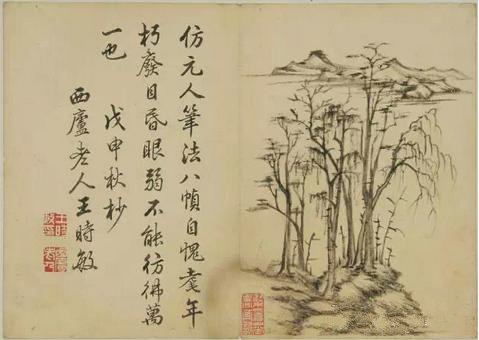 仿元人筆法八幀自愧耄年
朽廢目昏眼弱不能彷彿萬
一也
戊申秋杪
西廬老人王時敏